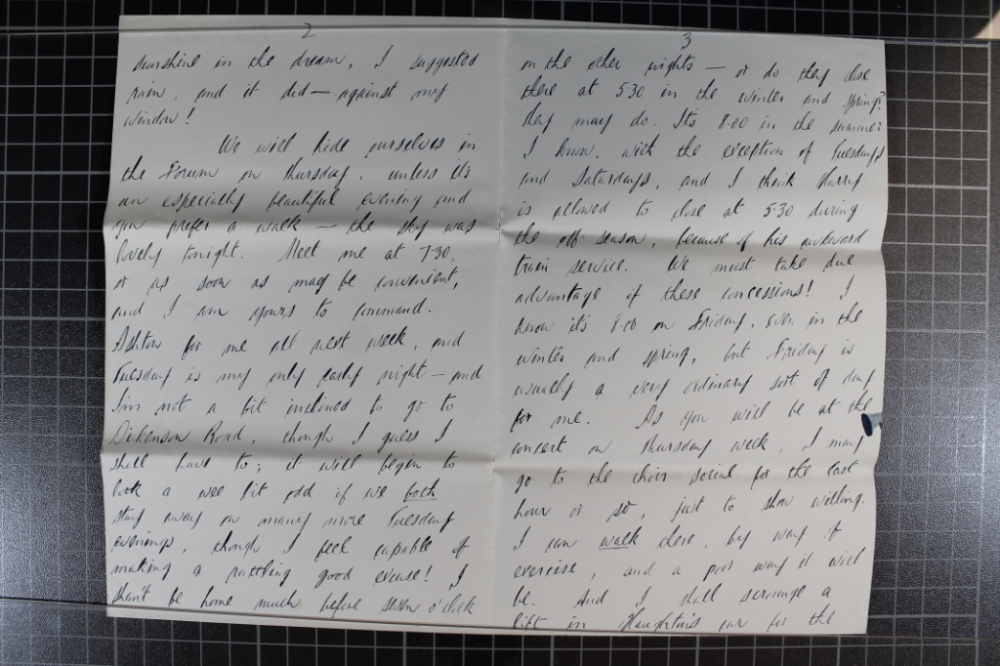 2
sunshine in the dream, I suggested
rain, and it did — against my
window!
We will hide ourselves in
the Forum on Thursday, unless it's
an especially beautiful evening and
you prefer a walk — the sky was
lovely tonight. Meet me at 7.30,
or as soon as may be convenient,
and I am yours to command.
Ashton for me all next week, and
Tuesday is my only early night — and
I'm not a bit inclined to go to
Dickenson Road, though I guess I
shall have to; it will begin to
look a wee bit odd if we both
stay away on many more Tuesday
evenings, though I feel capable of
making a rattling good excuse! I
shan't be home much before seven o'clock
3
on the other nights — or do they close
there at 5.30 in the winter and spring?
They may do. It's 8.00 in the summer
I know, with the exception of Tuesdays
and Saturdays, and I think Harry
is allowed to close at 5.30 during
the off season, because of his awkward
train service. We must take due
advantage of these concessions! I
know it's 8.00 on Friday, even in the
winter and spring, but Friday is
usually a very ordinary sort of day
for me. As you will be at the
concert on Thursday week, I may
go to the choir social for the last
hour or so, just to show willing.
I can walk there, by way of
exercise, and a poor way it will
be. And I shall scrounge a
lift in Haughton's car for the